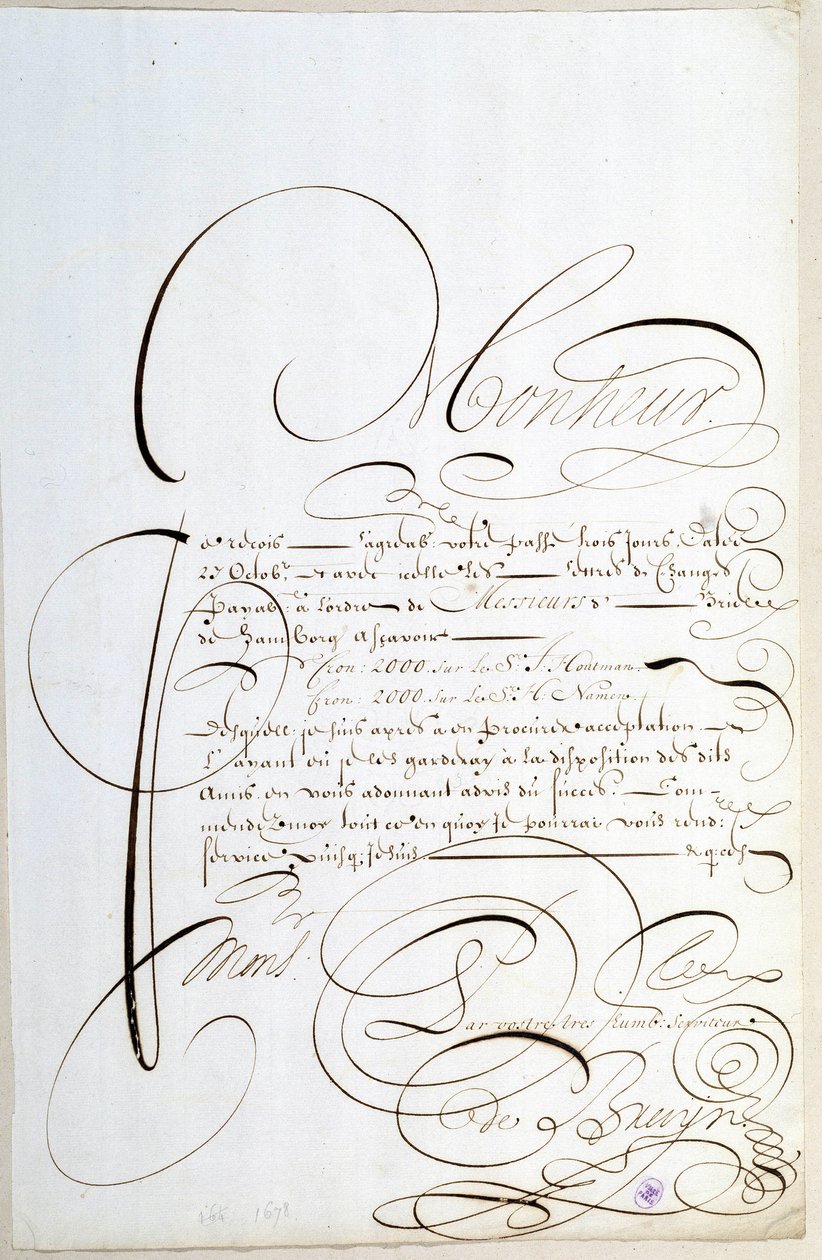 Monsieur.
Je recois l'agreab: votre passé trois Jours, Datée
27 Octob.r et avec icelle les Lettres de Changes
Payab: à l'ordre de Messieurs
de Hamborg asçavoir
Cron: 2000. sur Le Sr. J. Houtman.
Cron: 2000. sur Le Sr. H: Namen.
Desquell: je suis apres a en Procurer acceptation. et
L'ayant eu je les garderay à la disposition des dits
Amis. en vous adonnant advis du succes. Com-
mendez moy tout ce en quoy Je pourrai vous rend:
service puisq: Je suis &
Mons.r
Par vostre tres humb: Serviteur
de Bruÿn.
1678
VILLE DE PARIS